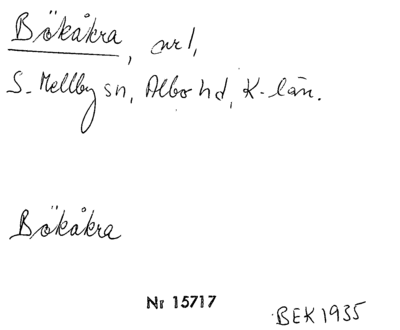 Bökåkra, url,
S. Mellby sn, Albo hd, K-län.
Bökåkra
Nr 15717
BEK 1935